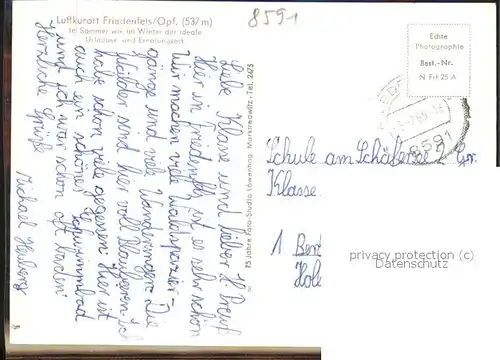 8591
Luftkurort Friedenfels/Opf. (537 m)
Im Sommer wie im Winter der ideale
Urlaubs- und Erholungsort
Echte
Photographie
Best.-Nr.
N Frf 25 A
8591
75 Jahre Foto-Studio Löwenhagen, Marktredwitz - Tel. 2275
Liebe Klasse und lieber H. Preuß
Hier in Friedenfels ist es sehr schön
Wir machen viele Waldspazier-
gänge und viele Wanderungen. Die
Wälder sind hier voll Blaubeeren. Ich
habe schon viele gegessen. Hier ist
auch ein schönes Schwimmbad
und ich war schon oft baden.
Herzliche Grüße
Michael
Schule am Schäfersee
Klasse
1
privacy protection (c)
Datenschutz